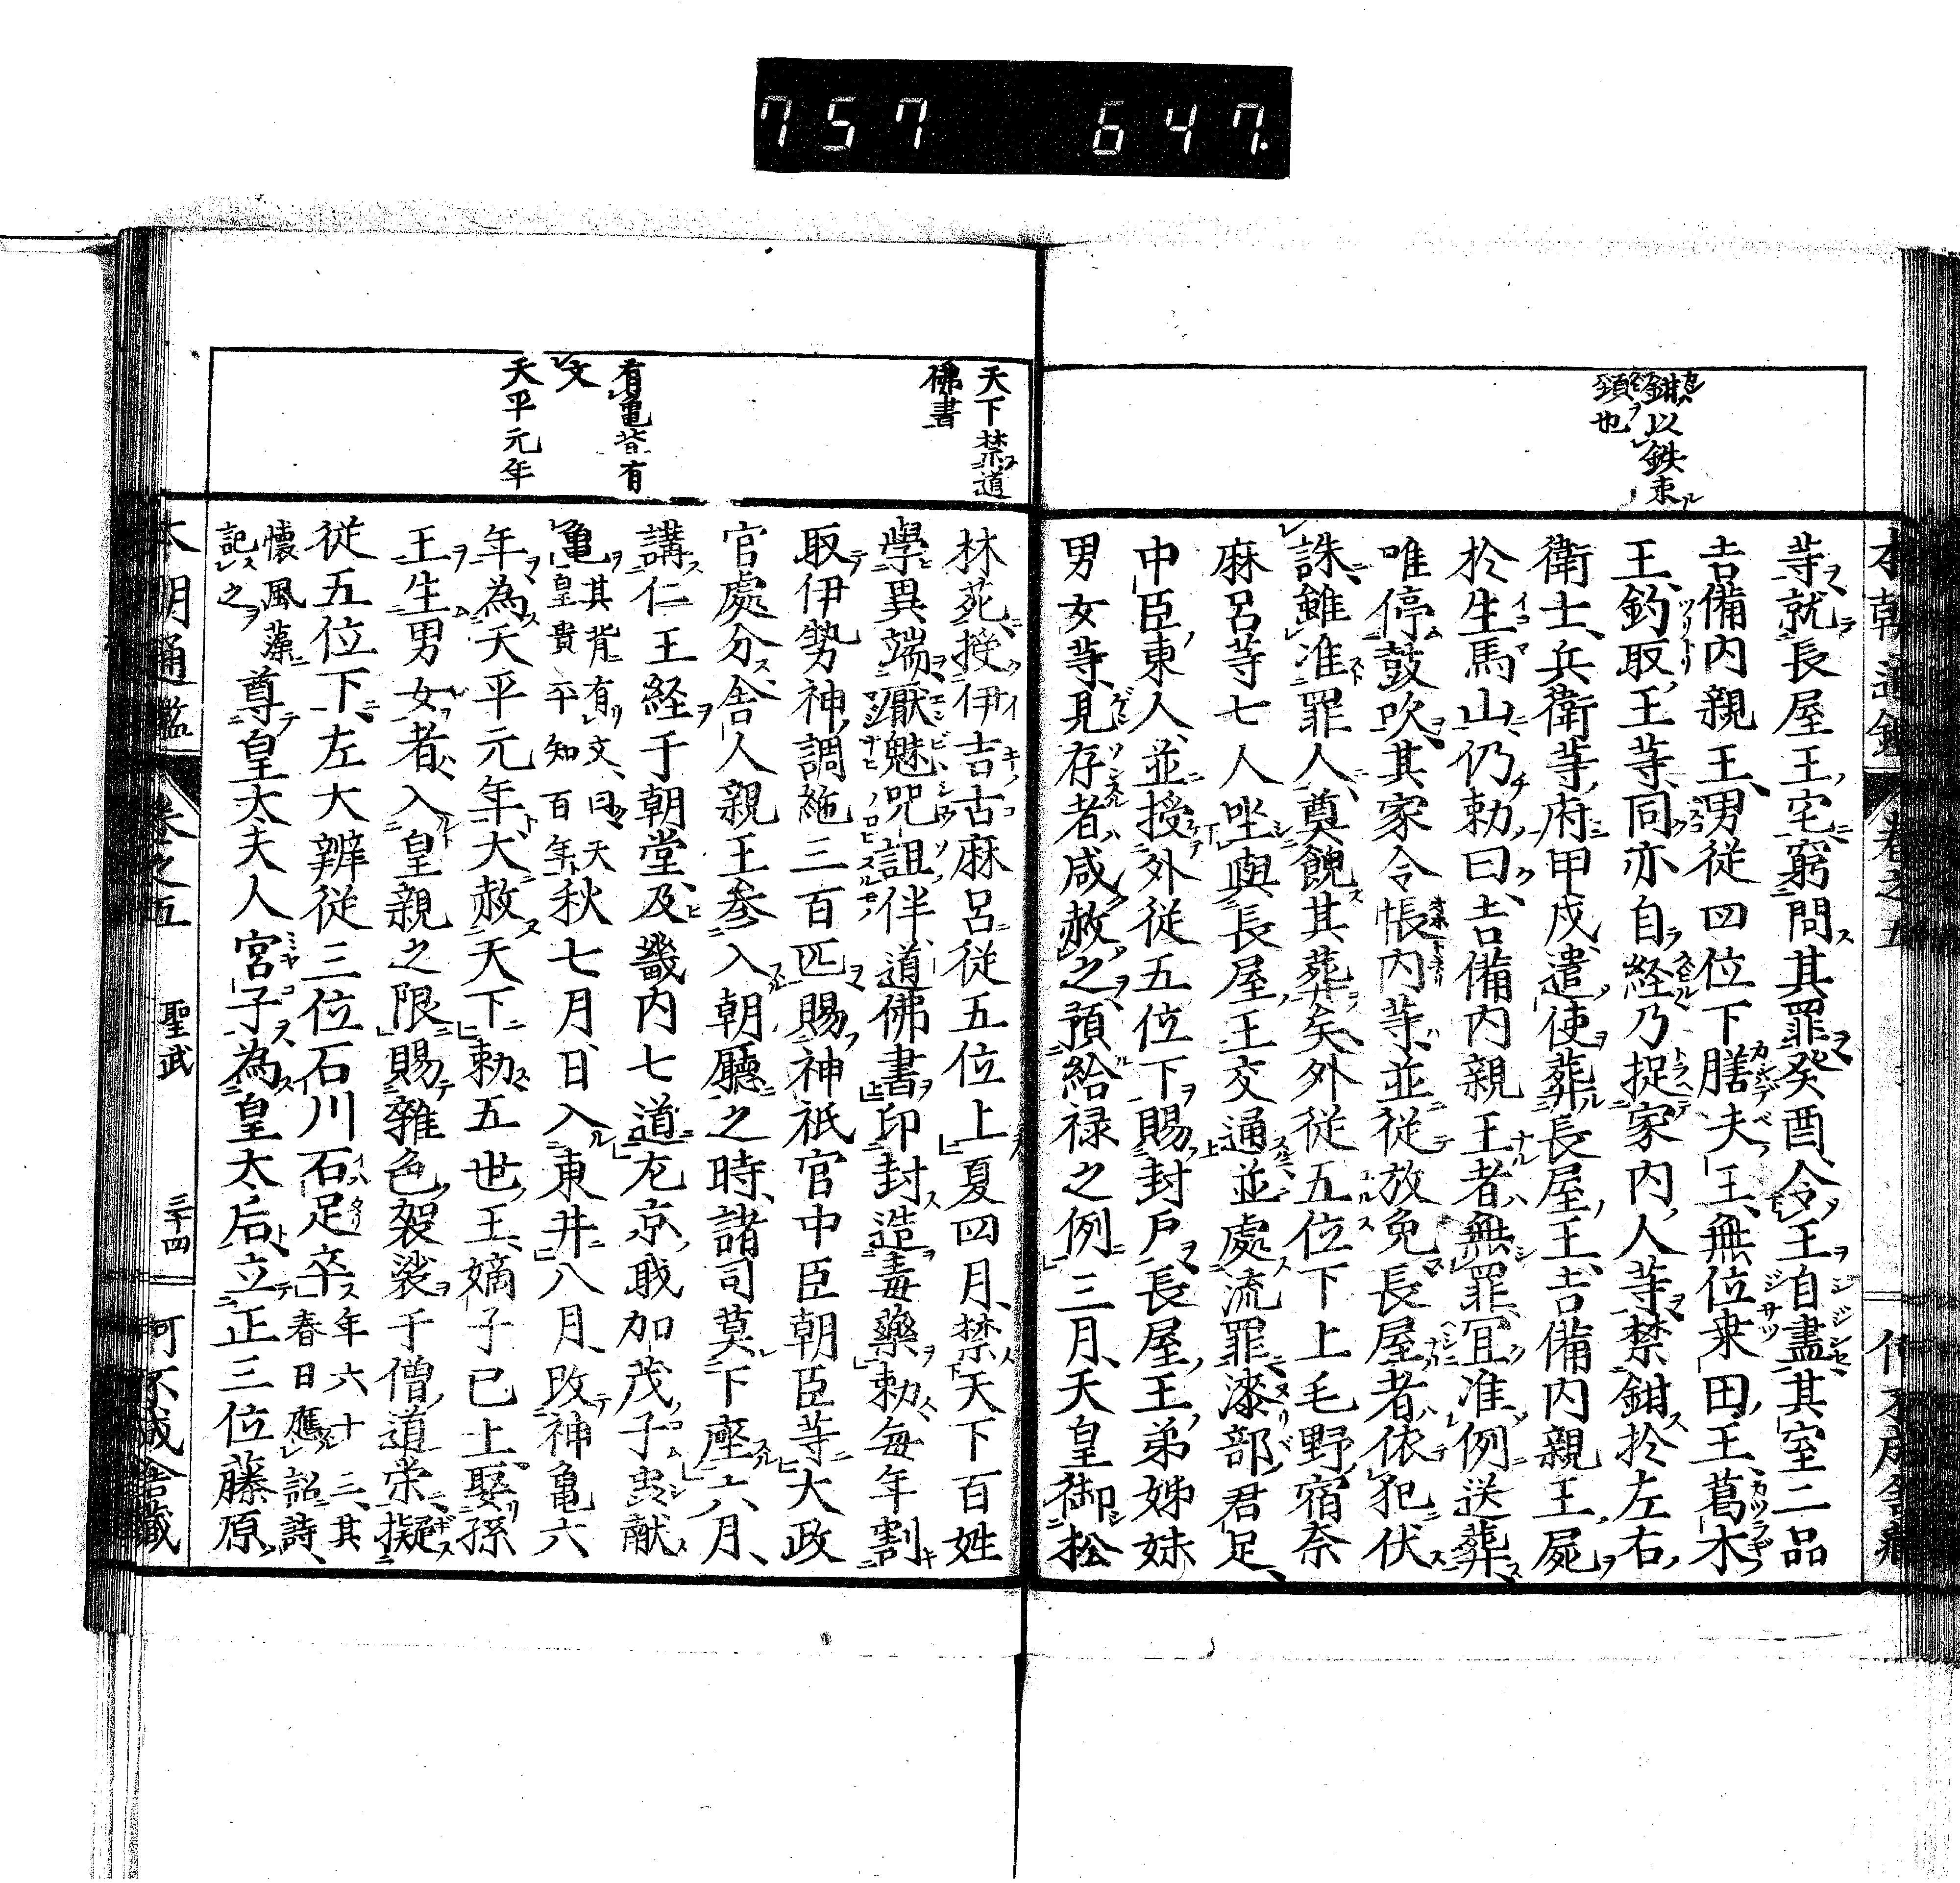 757 647.
鉗以鉄束
頸也
等就長屋王宅窮問其罪癸酉令王自盡其室二品
吉備内親王男従四位下膳夫王無位桒田王葛木
王釣取王等同亦自経乃捉家内人等禁鉗於左右
衛士兵衛等府甲戌遣使葬長屋王吉備内親王屍
於生馬山仍勅曰吉備内親王者無罪冝准例送葬
唯停鼓吹其家令帳内等並従放免長屋者依犯伏
誅雖准罪人莫餽其葬矣外従五位下上毛野宿奈
麻呂等七人坐與長屋王交通並處流罪漆部君足
中臣東人並授外従五位下賜封戸長屋王弟姊妹
男女等見存者咸赦之預給禄之例三月天皇御松
天下禁道
佛書
有亀背有
文
天平元年
林苑授伊吉古麻呂従五位上夏四月禁天下百姓
學異端厭魅咒詛伴道佛書印封造毒藥勅毎年割
取伊勢神調絁三百匹賜神祇官中臣朝臣等大政
官處分舎人親王参入朝廳之時諸司莫下座六月
講仁王経于朝堂及畿内七道左京職加茂子虫献
亀其背有文曰天
皇貴平知百年秋七月日入東井八月改神亀六
年為天平元年大赦天下勅五世王嫡子已上娶孫
王生男女者入皇親之限賜雜色袈裟于僧道栄擬
従五位下左大辨従三位石川石足卒年六十三其
春日應詔詩
懐風藻
記之尊皇太夫人宮子為皇太后立正三位藤原
本朝通鑑 巻之五 聖武 三十四